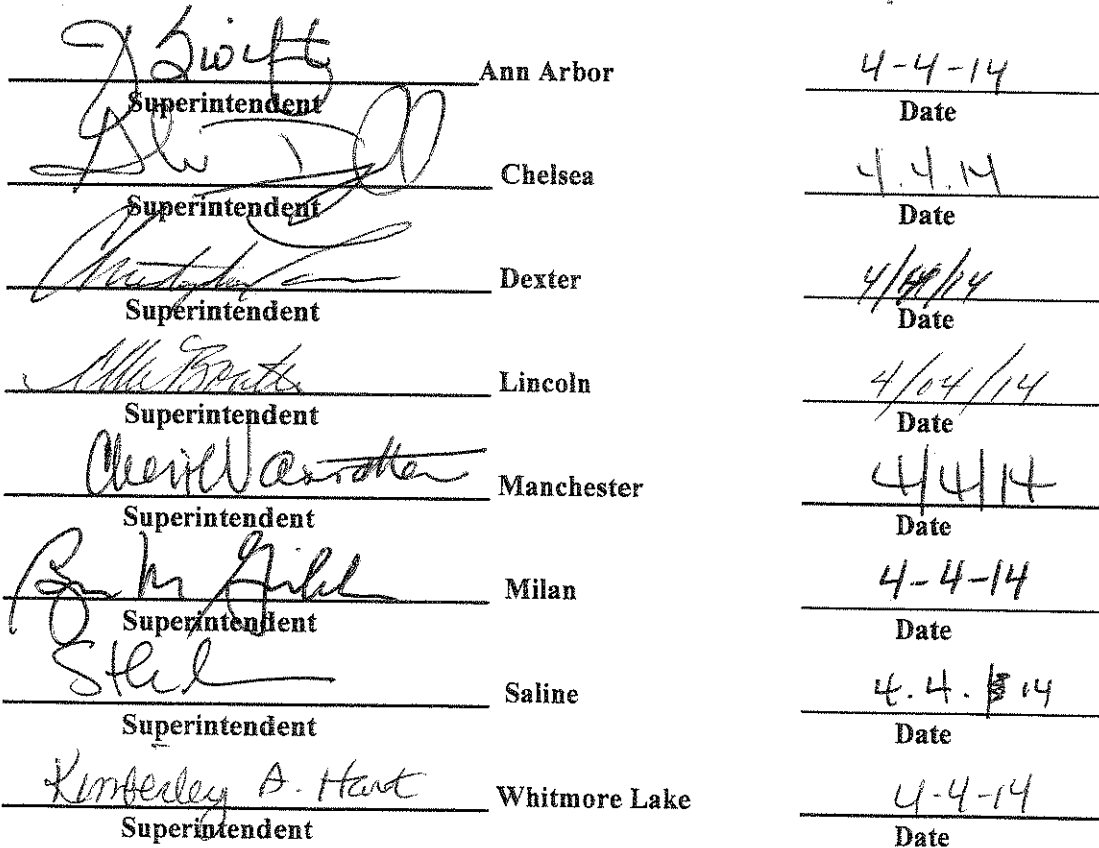 Ann Arbor 4-4-14
Superintendent Date
Chelsea 4.4.14
Superintendent Date
Dexter
Superintendent Date
Lincoln 4/04/14
Superintendent Date
Manchester 4/4/14
Superintendent Date
Milan 4-4-14
Superintendent Date
Saline 4.4. 14
Superintendent Date
Kimberley A. Hart Whitmore Lake 4-4-14
Superintendent Date